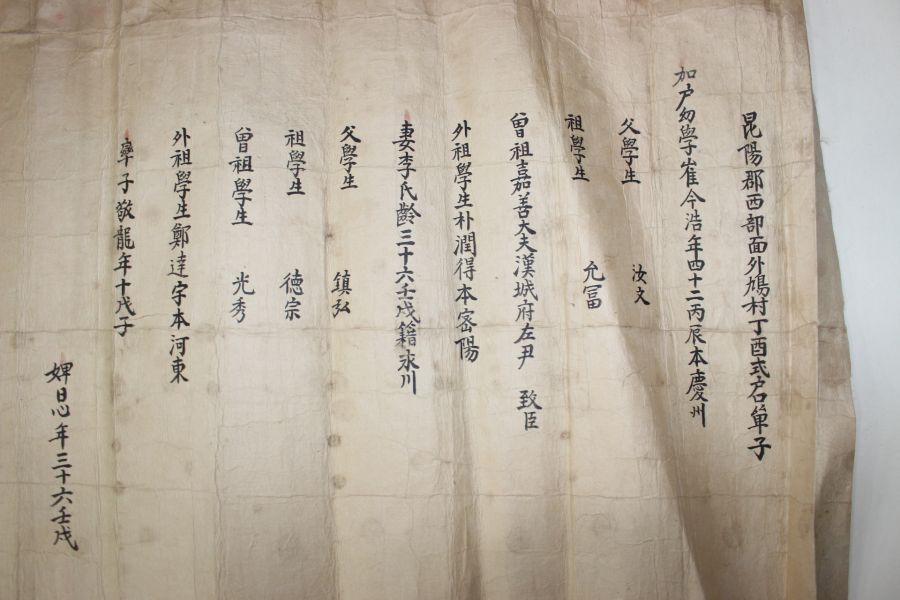 昆陽郡西部面外鳩村丁酉式戶名單子
加戶幼學崔今浩年四十二丙辰本慶州
父學生 汝文
祖學生 允冨
曾祖嘉善大夫漢城府左尹 致臣
外祖學生朴潤得本密陽
妻李氏齡三十六壬戌籍永川
父學生 鎮弘
祖學生 德宗
曾祖學生 光秀
外祖學生鄭達宇本河東
率子敬龍年十戊子
婢日心年三十六壬戌